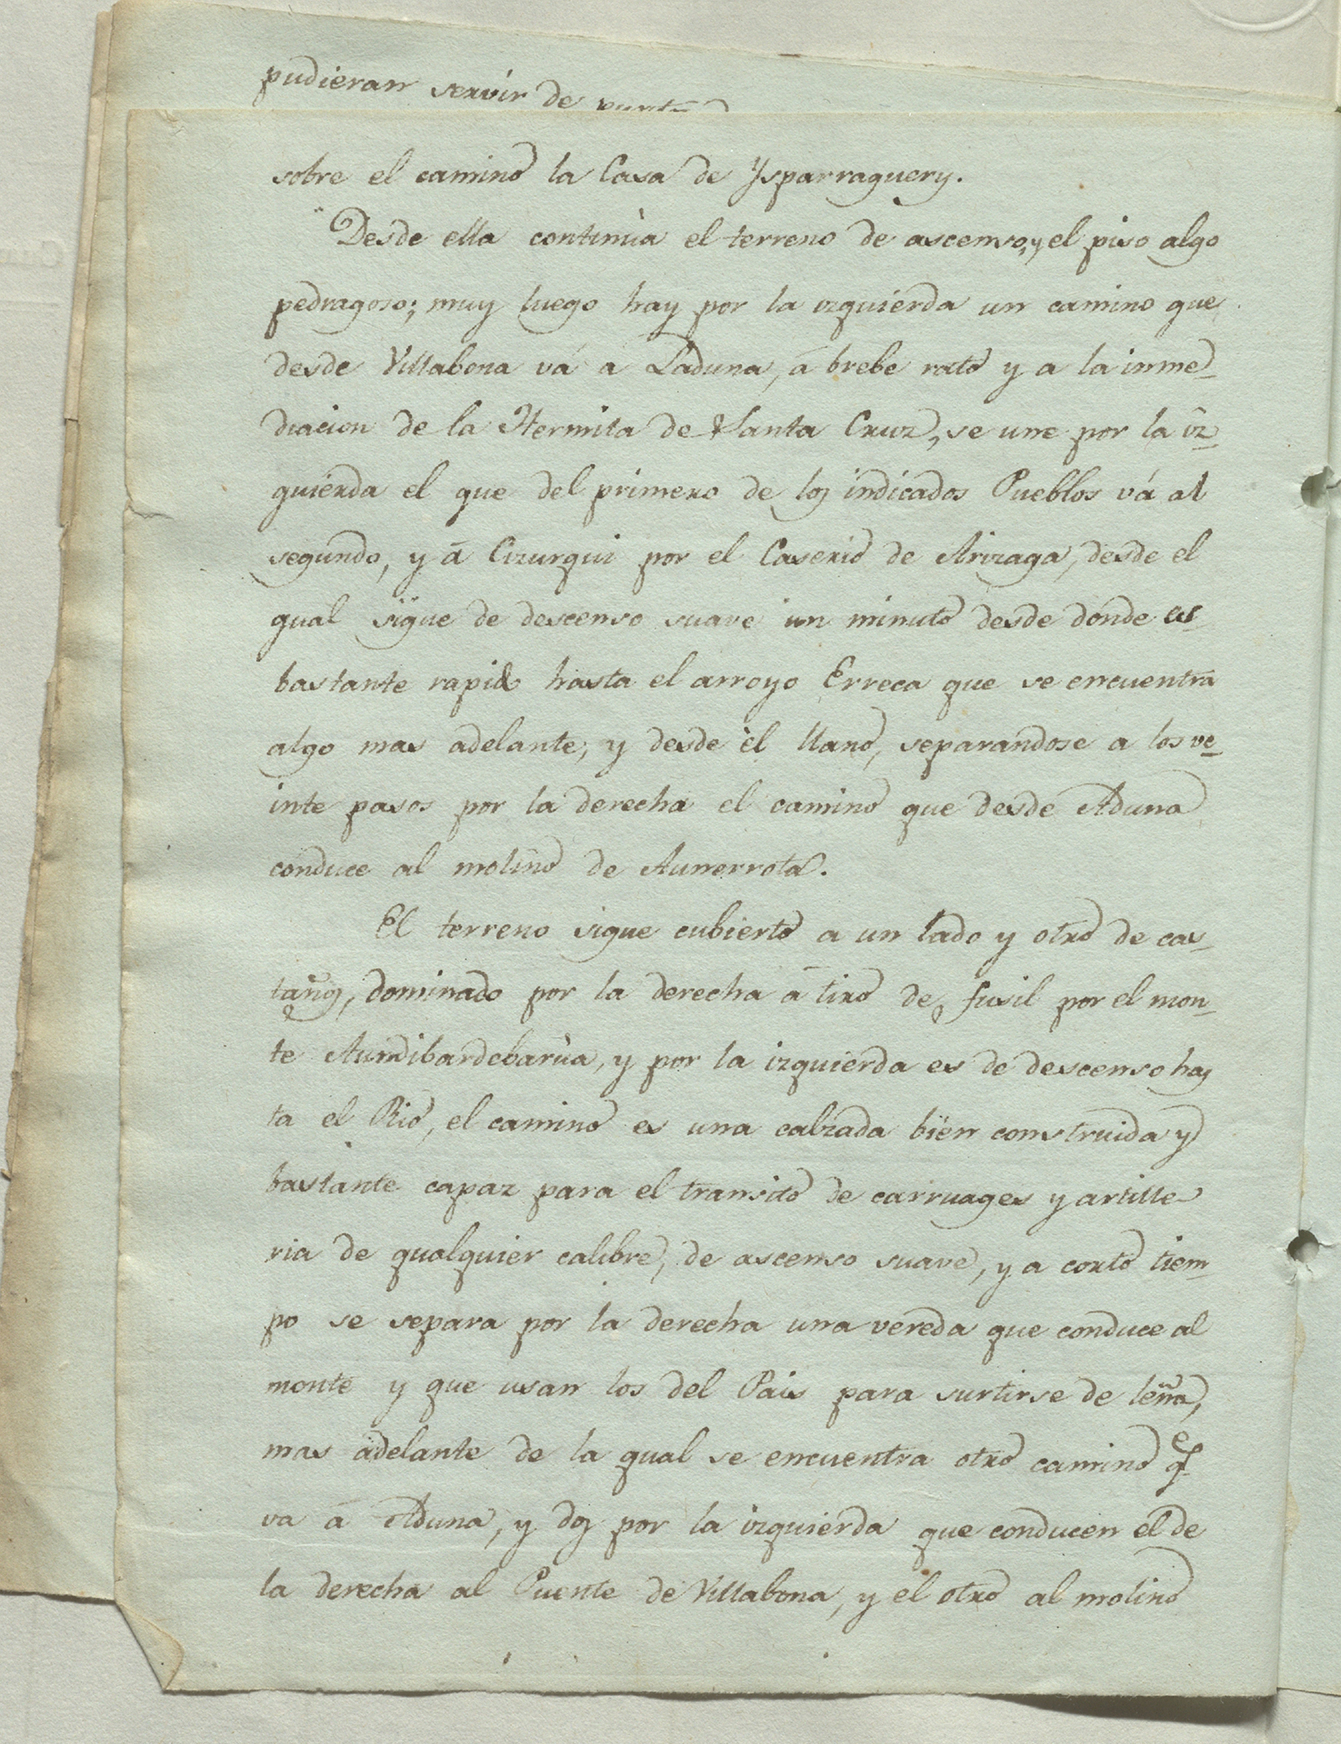 pudieran servir de
sobre el camino la Casa de Ysparraguery.
Desde ella continùa el terreno de ascenso, y el piso algo
pedragoso; muy luego hay por la izquierda un camino que
desde Villabona vá a Laduna, á brebe rato y a la inme-
diacion de la Hermita de Santa Cruz, se une por la iz-
quierda el que del primero de los indicados Pueblos vá al
segundo, y á Cizurqui por el Caserio de Arizaga, desde el
qual sigue de descenso suave un minuto desde donde es
bastante rapido hasta el arroyo Erreca que se encuentra
algo mas adelante; y desde èl llano, separandose a los ve-
inte pasos por la derecha el camino que desde Aduna
conduce al molino de Aunerrota.
El terreno sigue cubierto a un lado y otro de cas-
taños, dominado por la derecha á tiro de fusil por el mon-
te Aundibardebarùa, y por la izquierda es de descenso has
ta el Rio, el camino es una calzada bien construida y
bastante capaz para el transito de carruages y artille
ria de qualquier calibre, de ascenso suave, y a corto tiem-
po se separa por la derecha una vereda que conduce al
monte y que usan los del Pais para surtirse de leña,
mas adelante de la qual se encuentra otro camino qe
va á Aduna, y dos por la izquierda que conducen el de
la derecha al Puente de Villabona, y el otro al molino